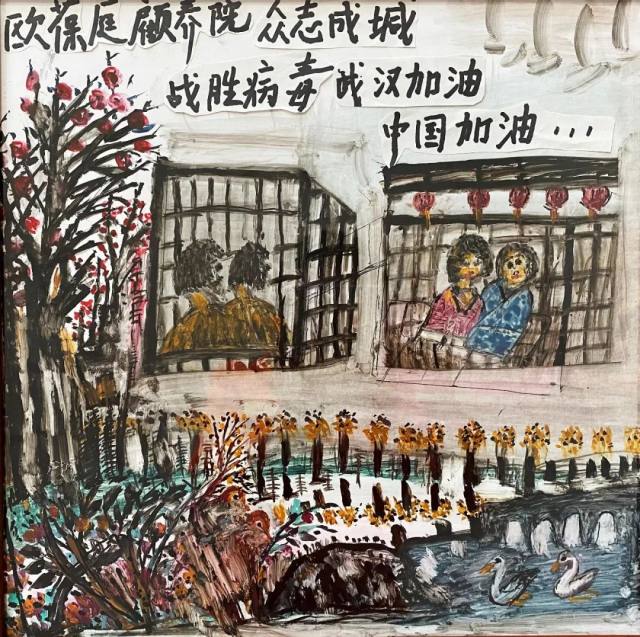 欧葆庭顾养院 众志成城
战胜病毒 武汉加油
中国加油...